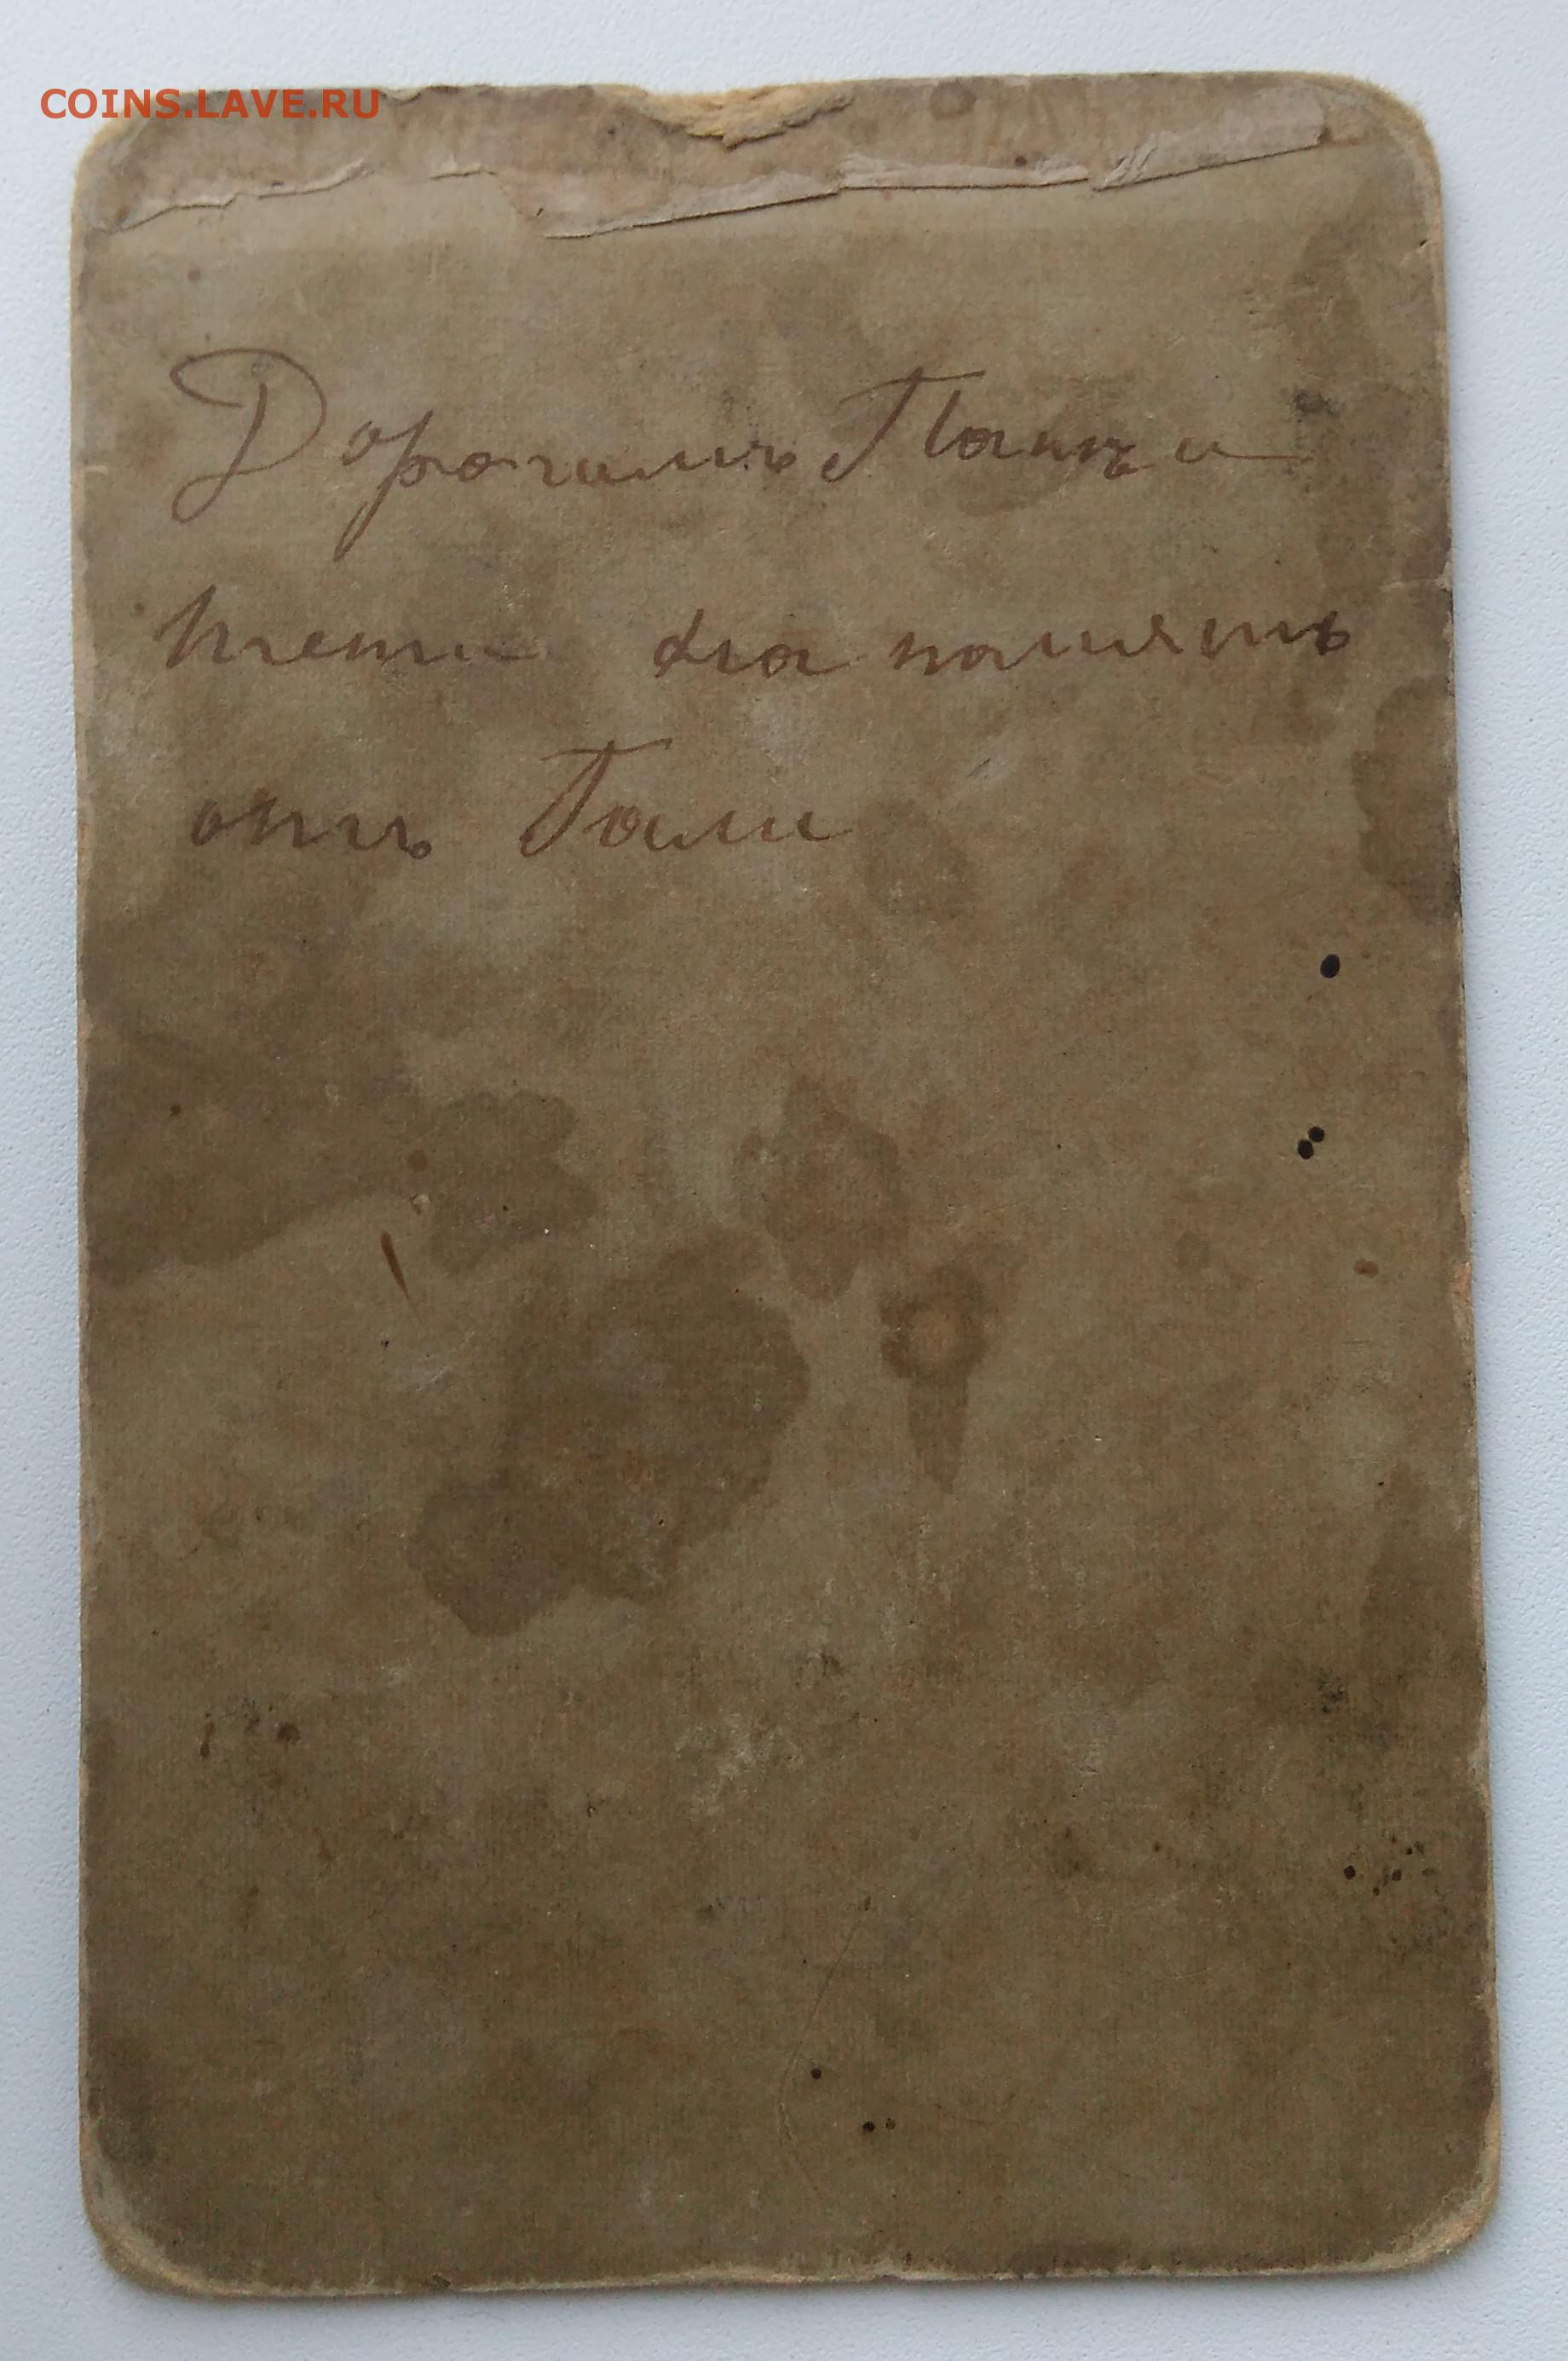 COINS.LAVE.RU
Дорогимъ Папѣ и
тети на память
отъ Гали